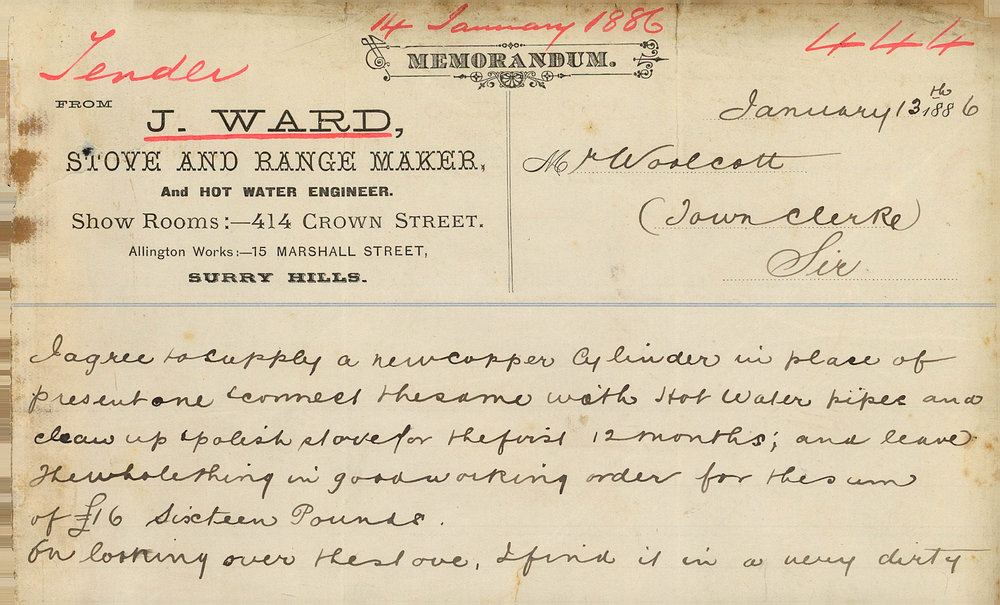 14 January 1886
Tender
444
MEMORANDUM.
FROM
J. WARD,
STOVE AND RANGE MAKER,
And HOT WATER ENGINEER.
Show Rooms:—414 CROWN STREET.
Allington Works:—15 MARSHALL STREET,
SURRY HILLS.
January 13th 1886
Mr Woolcott
(Town Clerke)
Sir
I agree to supply a new copper Cylinder in place of
present one & connect the same with Hot Water pipes and
clean up & polish stove for the first 12 months; and leave
the whole thing in good working order for the sum
of £16 Sixteen Pounds.
On looking over the stove, I find it in a very dirty